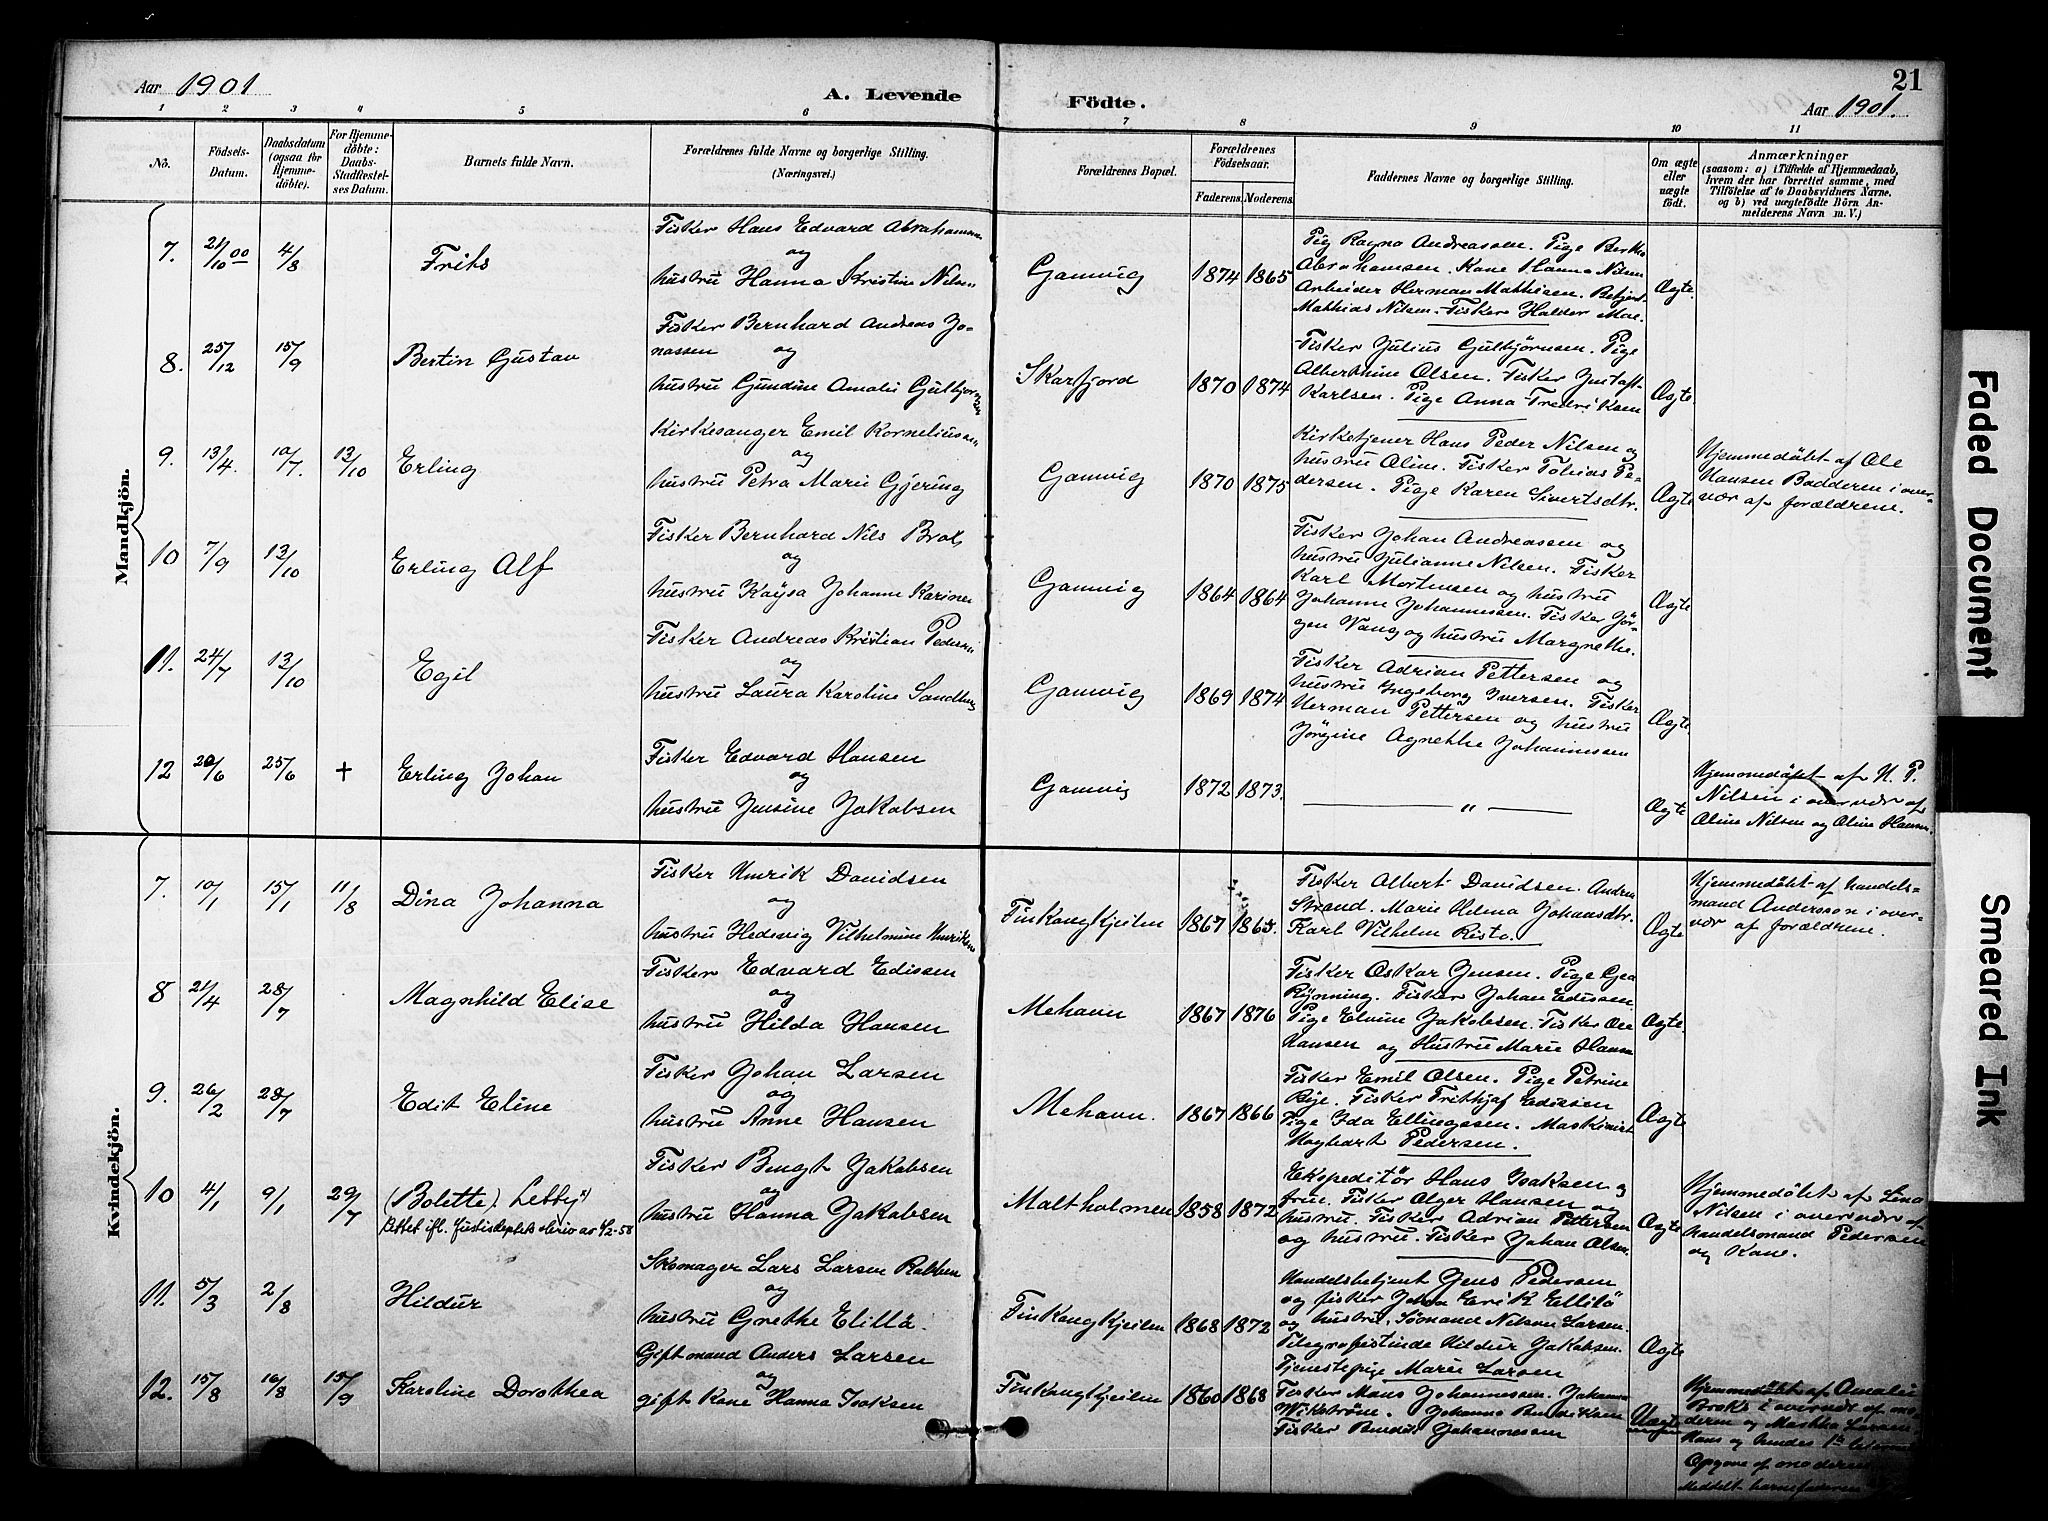 Aar 1901
A. Levende
Födte.
21
Aar 1901.
1 2 3 4 5 6 7 8 9 10 11
No.
Födsels-
Datum.
Daabsdatum
(ogsaa for
Hjemme-
döbte).
For Hjemme-
döbte:
Daabs-
Stadfæstel-
ses Datum.
Barnets fulde Navn.
Forældrenes fulde Navne og borgerlige Stilling.
(Næringsvei.)
Forældrenes Bopæl.
Forældrenes
Födselsaar.
Faderens. Moderens.
Faddernes Navne og borgerlige Stilling.
Om ægte
eller
uægte
födt.
Anmærkninger
(saasom: a) i Tilfælde af Hjemmedaab,
hvem der har forrettet samme, med
Tilföielse af to Daabsvidners Navne,
og b) ved uægtefödte Börn An-
melderens Navn m. V.)
Mandkjön.
7. 21/10 00 4/8 Frits
Fisker Hans Edvard Abrahamsen
og
hustru Hanna Kristine Nilsen
Gamvig 1874 1865
Pig Ragna Andreassen. Pige Berthe
Abrahamsen. Kone Hanna Nilsen
Arbeider Herman Mathisen. Betjent
Mathias Nilsen. Fisker Halder Moe.
Ægte.
8. 25/12 15/9 Bertin Gustav
Fisker Bernhard Andreas Jo-
nassen og
hustru Gundine Amalie Gulbjörnsen
Skarfjord 1870 1874
Fisker Julius Gulbjörnsen. Pige
Alberthine Olsen. Fisker Gustaf
Karlsen. Pige Anna Fredriksen
Ægte.
9. 13/4. 10/7. 13/10 Erling
Kirkesanger Emil Korneliussen
og
hustru Petra Marie Gjering
Gamvig 1870 1875
Kirketjener Hans Peder Nilsen og
hustru Aline. Fisker Tobias Pe-
dersen. Pige Karen Sivertsdtr.
Ægte
Hjemmedöbt af Ole
Hansen Badderen i over-
vær af forældrene.
10 7/9 13/10 Erling Alf
Fisker Bernhard Nils Broks
og
hustru Kaysa Johanne Karine
Gamvig 1864 1864
Fisker Johan Andreassen og
hustru Julianne Nilsen. Fisker
Karl Mortensen og hustru
Johanne Johannessen. Fisker Jör-
gen Vang og hustru Margrethe.
Ægte
11. 24/7 13/10 Egil
Fisker Andreas Kristian Pedersen
og
hustru Laura Karoline Sandberg
Gamvig 1869 1874
Fisker Adrian Pettersen og
hustru Ingeborg Iversen. Fisker
Herman Pettersen og hustru
Jörgine Agnethe Johannessen
Ægte.
12 20/6 25/6 + Erling Johan
Fisker Edvard Hansen
og
hustru Jensine Jakobsen
Gamvig 1872 1873.
— " —
Ægte
Hjemmedöbt af H. P.
Nilsen i overvær af
Aline Nilsen og Oline Hansen.
Kvindekjön.
7. 10/1 15/1 11/8 Dina Johanna
Fisker Henrik Davidsen
og
hustru Hedevig Vilhelmine Henriksen
Finkongkjeilen 1867 1865.
Fisker Albert Davidsen. Andrea
Strand. Marie Helena Johansdtr.
Karl Vilhelm Risto.
Ægte
Hjemmedöbt af handels-
mand Andersson i over-
vær af forældrene.
8 21/4 28/7 Magnhild Elise
Fisker Edvard Edissen
og
hustru Hilda Hansen
Mehavn 1867 1876
Fisker Oskar Jensen. Pige Gea
Rynning. Fisker Johan Edissen
Pige Elvine Jakobsen. Fisker Ole
Hansen og Hustru Marie Hansen
Ægte.
9. 26/2 28/7 Edit Eline
Fisker Johan Larsen
og
hustru Anne Hansen
Mehavn. 1867 1866
Fisker Emil Olsen. Pige Petrine
Rye. Fisker Frithjof Edissen
Pige Ida Ellingssen. Maskinist
Hagbart Pedersen.
Ægte
10 4/1 9/1 29/7 (Bolette). Lebby x)
Fisker Bengt Jakobsen
og
hustru Hanna Jakobsen
Maltholmen 1858 1872
Ekspeditör Hans Isaksen og
frue. Fisker Olger Hansen og
hustru. Fisker Adrian Pettersen
og hustru. Fisker Johan Olsen.
Ægte
Hjemmedöbt af Lina
Nilsen i overvær af
handelsmand Pedersen
og Kone.
11. 5/3 2/8 Hildur
Skomager Lars Larsen Rabben
og
hustru Grethe Elilla.
Finkongkjeilen 1868 1872
Handelsbetjent Jens Pedersen
og fisker Johan Erik Ellilö
og hustru. Sömand Nilsen Larsen.
Telegrafistinde Hildur Jakobsen.
Tjenestepige Marie Larsen
Ægte
12. 15/8 16/8 15/9 Karoline Dorothea
Gift mand Anders Larsen
og
gift Kone Hanna Isaksen
Finkongkjeilen 1860 1868
Fisker Hans Johannessen. Johanna
Wikström. Johanna Bendiksen
Fisker Benedik Johannessen
Uægte
Hjemmedöbt af Amalie
Broks i overvær af mo-
deren og Martha Larsen
Hans og hendes 1ste
Opgave af moderen
Meddelt barnefaderen
Faded Document
Smeared Ink